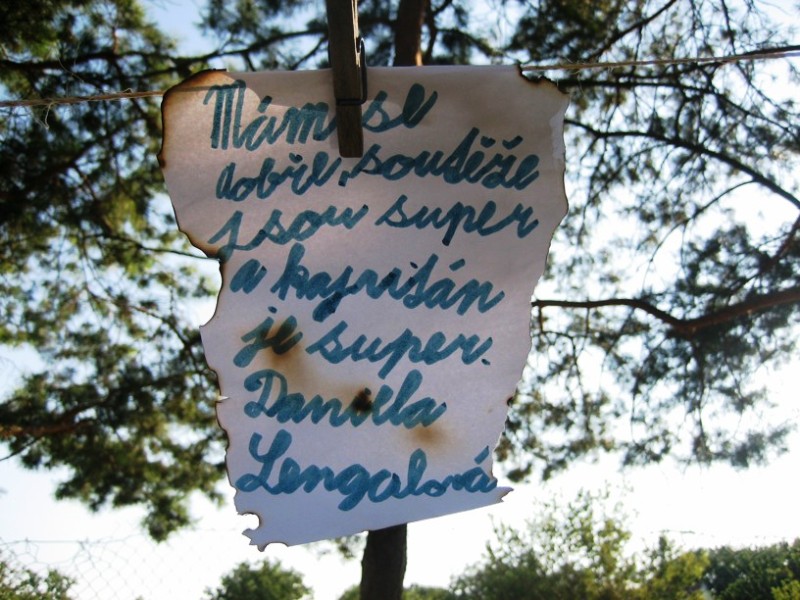 Mám se
dobře, soutěže
jsou super
a kapitán
je super.
Daniela
Lengalová